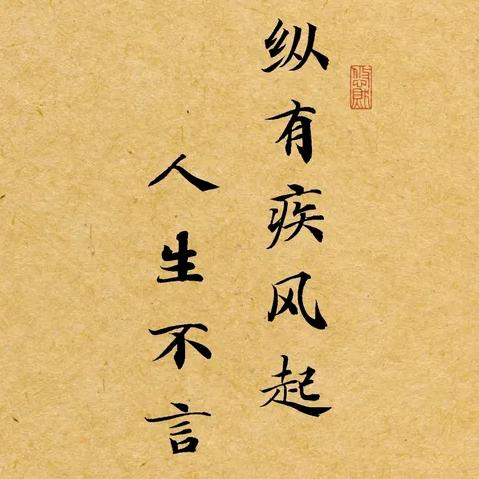 纵有疾风起
人生不言